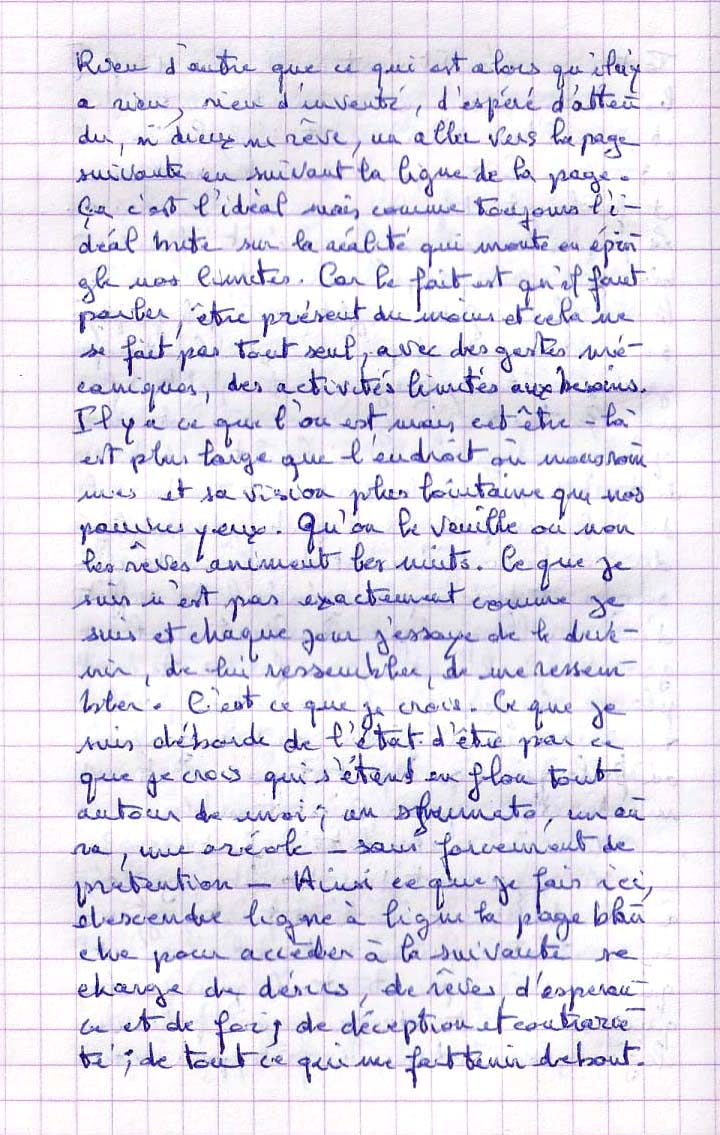 Rien d'autre que ce qui est alors qu'il n'y
a rien, rien d'inventé, d'espéré d'atten
du, ni dieux ni rêve, un aller vers la page
suivante en suivant la ligne de la page.
Ça c'est l'idéal mais comme toujours l'i-
déal bute sur la réalité qui monte en épin
gle nos limites. Car le fait est qu'il faut
parler, être présent du moins et cela ne
se fait pas tout seul, avec des gestes mé-
caniques, des activités limités aux besoins.
Il y a ce que l'on est mais cet être-là
est plus large que l'endroit où nous som
mes et sa vision plus lointaine que nos
pauvres yeux. Qu'on le veuille ou non
les rêves animent les nuits. Ce que je
suis n'est pas exactement comme je
suis et chaque jour j'essaye de le deve-
nir, de lui ressembler, de me ressem
bler. C'est ce que je crois. Ce que je
suis déborde de l'état d'être par ce
que je crois qui s'étend en flou tout
autour de moi ; un sfumato, un au
ra, une aréole - sans forcément de
prétention - Ainsi ce que je fais ici,
descendre ligne à ligne la page blan
che pour accéder à la suivante se
charge de désirs, de rêves, d'espéran
ce et de foi ; de déception et contrarié
té ; de tout ce qui me fait tenir debout.